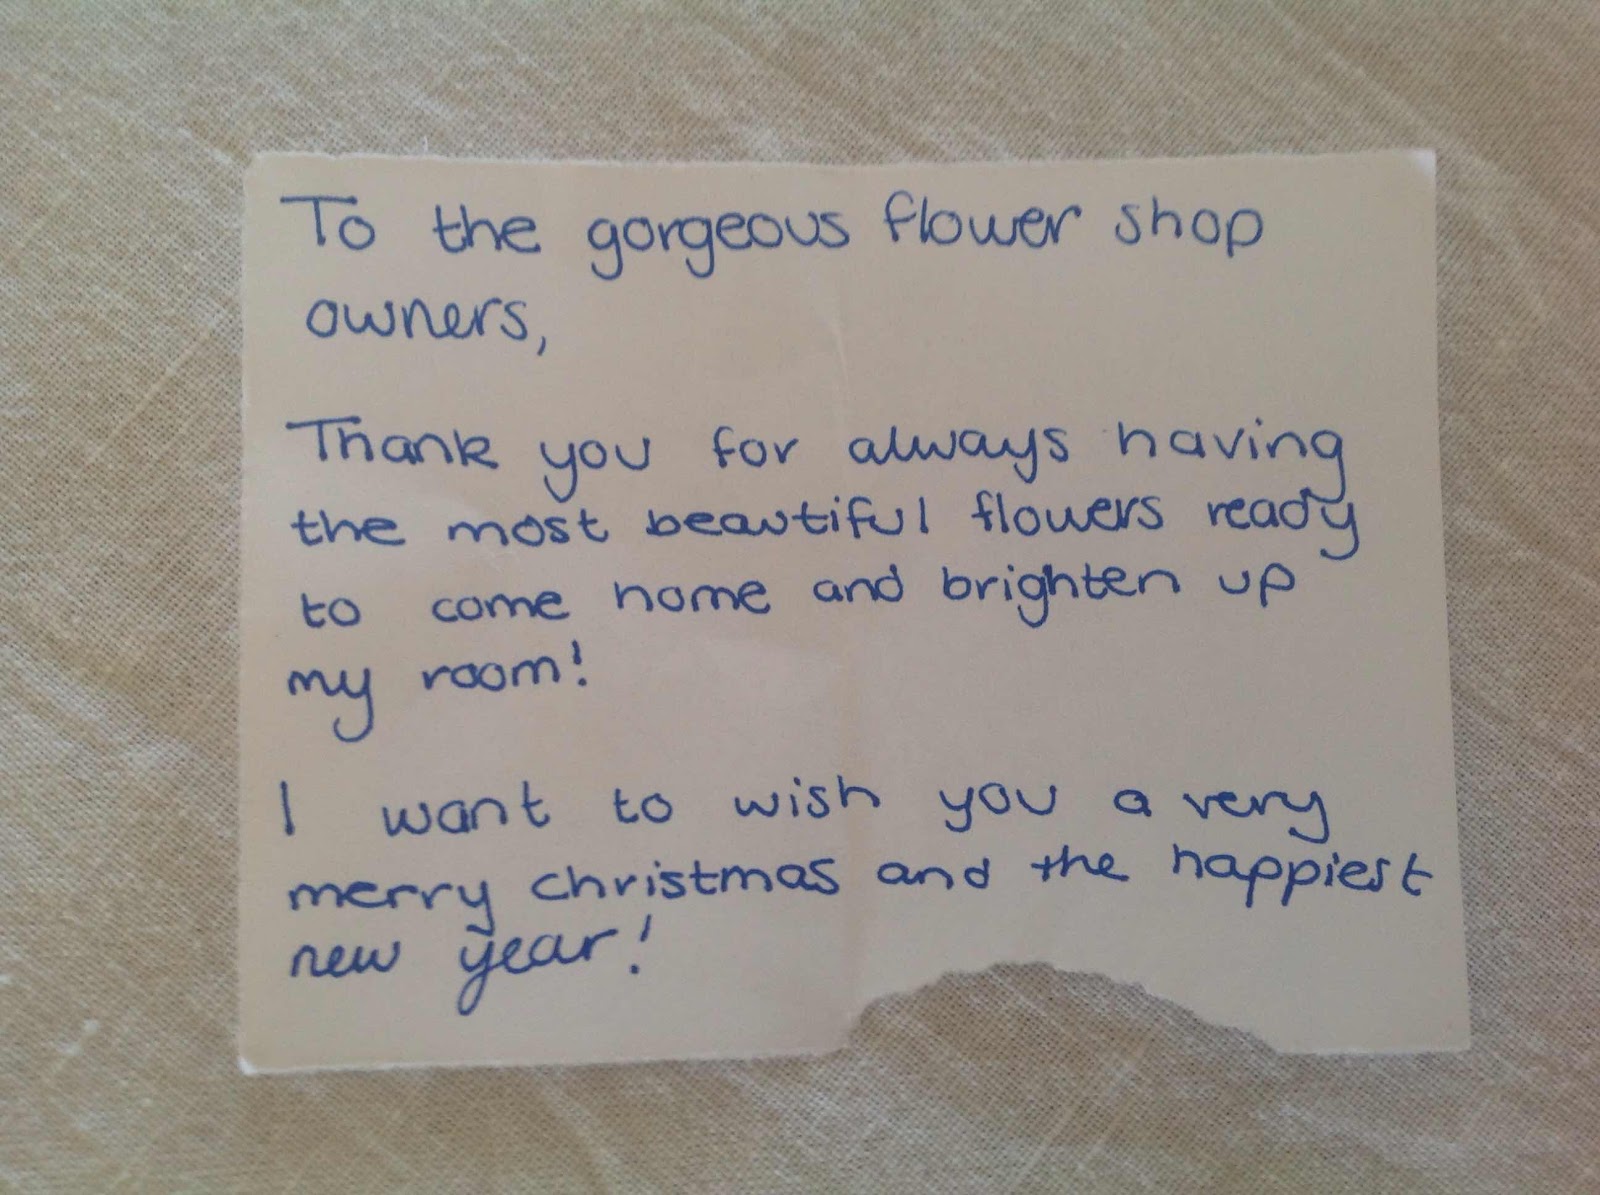 To the gorgeous flower shop
owners,
Thank you for always having
the most beautiful flowers ready
to come home and brighten up
my room!
I want to wish you a very
merry christmas and the happiest
new year!